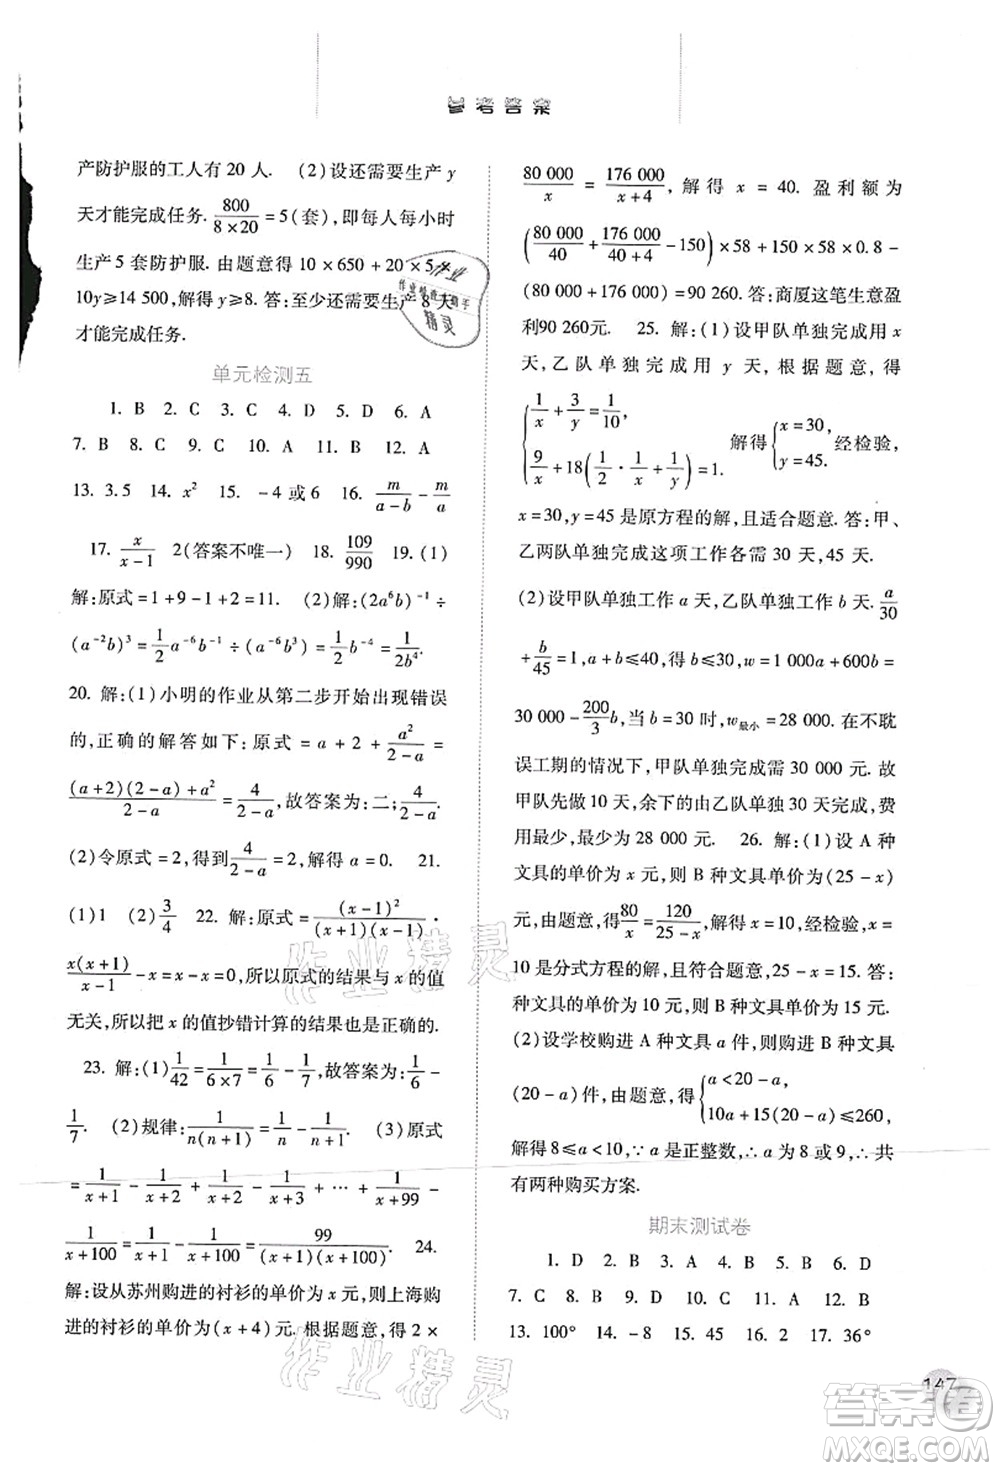 参考答案
产防护服的工人有 20 人. (2)设还需要生产 y
天才能完成任务. 800/(8×20) = 5(套),即每人每小时
生产 5 套防护服. 由题意得 10 × 650 + 20 × 5 ×
10y≥14 500,解得 y≥8. 答:至少还需要生产 8 天
才能完成任务.
单元检测五
1. B 2. C 3. C 4. D 5. D 6. A
7. B 8. B 9. C 10. A 11. B 12. A
13. 3.5 14. x² 15. -4 或 6 16. m/(a-b) - m/a
17. x/(x-1) 2(答案不唯一) 18. 109/990 19. (1)
解:原式 = 1 + 9 - 1 + 2 = 11. (2)解:(2a⁶b)⁻¹ ÷
(a⁻²b)³ = 1/2 a⁻⁶b⁻¹ ÷ (a⁻⁶b³) = 1/2 b⁻⁴ = 1/(2b⁴).
20. 解:(1)小明的作业从第二步开始出现错误
的,正确的解答如下:原式 = a + 2 + a²/(2-a) =
((a+2)(2-a)+a²)/(2-a) = 4/(2-a),故答案为:二;4/(2-a)
(2)令原式 = 2,得到 4/(2-a) = 2,解得 a = 0. 21.
(1)1 (2)3/4 22. 解:原式 = (x-1)²/((x+1)(x-1)) ·
x(x+1)/(x-1) - x = x - x = 0,所以原式的结果与 x 的值
无关,所以把 x 的值抄错计算的结果也是正确的.
23. 解:(1)1/42 = 1/(6×7) = 1/6 - 1/7,故答案为:1/6 -
1/7. (2)规律:1/(n(n+1)) = 1/n - 1/(n+1). (3)原式
= 1/(x+1) - 1/(x+2) + 1/(x+2) - 1/(x+3) + ⋯ + 1/(x+99) -
1/(x+100) = 1/(x+1) - 1/(x+100) = 99/((x+1)(x+100)). 24.
解:设从苏州购进的衬衫的单价为 x 元,则上海购
进的衬衫的单价为(x + 4)元. 根据题意,得 2 ×
80 000/x = 176 000/(x+4),解得 x = 40. 盈利额为
(80 000/40 + 176 000/44 - 150) × 58 + 150 × 58 × 0.8 -
(80 000 + 176 000) = 90 260. 答:商厦这笔生意盈
利90 260元. 25. 解:(1)设甲队单独完成用 x
天,乙队单独完成用 y 天,根据题意,得
{1/x + 3/y = 1/10, 9/x + 18(1/2 · 1/x + 1/y) = 1. 解得{x = 30, y = 45. 经检验,
x = 30,y = 45 是原方程的解,且适合题意. 答:甲、
乙两队单独完成这项工作各需 30 天,45 天.
(2)设甲队单独工作 a 天,乙队单独工作 b 天. a/30
+ b/45 = 1,a≤40,得 b≤35,w = 1 000a + 600b =
30 000 - 200/3 b,当 b = 30 时,w最小 = 28 000. 在不耽
误工期的情况下,甲队单独完成需 30 000 元. 故
甲队先做 10 天,余下的由乙队单独 30 天完成,费
用最少,最少为 28 000 元. 26. 解:(1)设 A 种
文具的单价为 x 元,则 B 种文具单价为(25 - x)
元,由题意,得80/x = 120/(25-x),解得 x = 10,经检验,x =
10 是分式方程的解,且符合题意,25 - x = 15. 答:A
种文具的单价为 10 元,则 B 种文具单价为 15 元.
(2)设学校购进 A 种文具 a 件,则购进 B 种文具
(20 - a)件,由题意,得{a < 20 - a, 10a + 15(20 - a)≤260,
解得 8≤a < 10,∵a 是正整数,∴a 为 8 或 9,∴共
有两种购买方案.
期末测试卷
1. D 2. B 3. A 4. B 5. B 6. D
7. C 8. B 9. D 10. D 11. A 12. B
13. 100° 14. -8 15. 45 16. 2 17. 36°
147
作业
作业精灵
作业精灵
答案圈
MXQE.COM